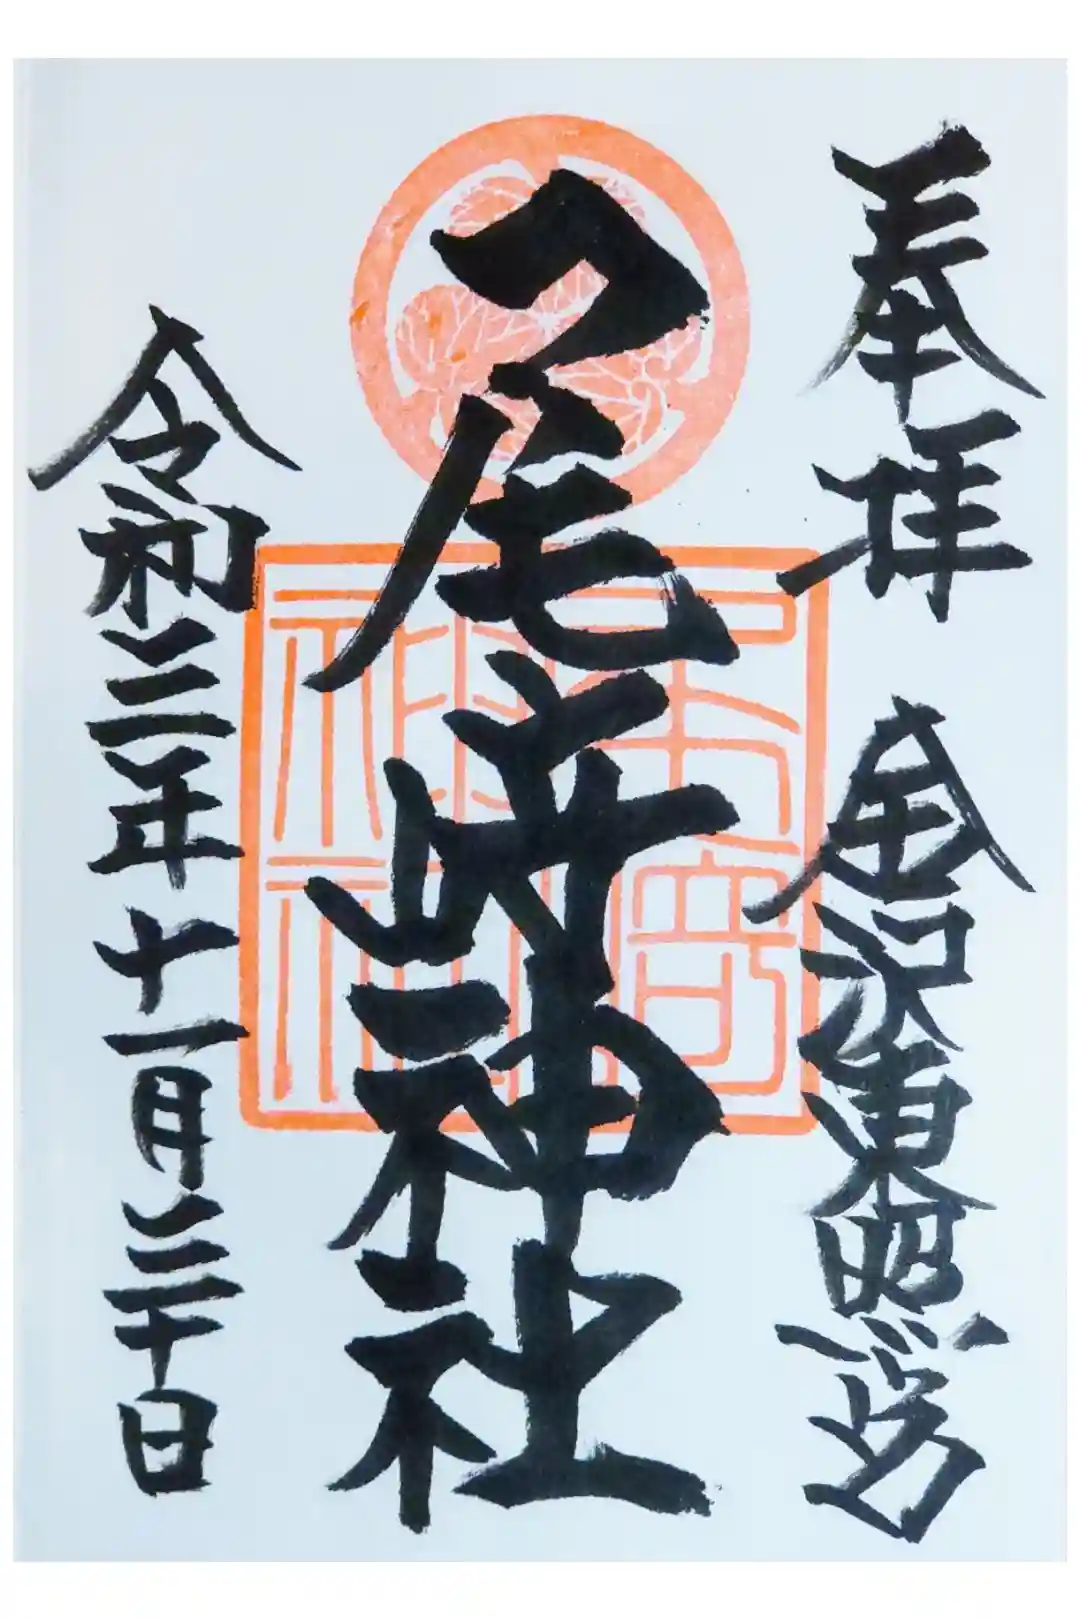 奉拝 金沢東照宮
尾﨑神社
令和三年十一月三十日
尾﨑神社